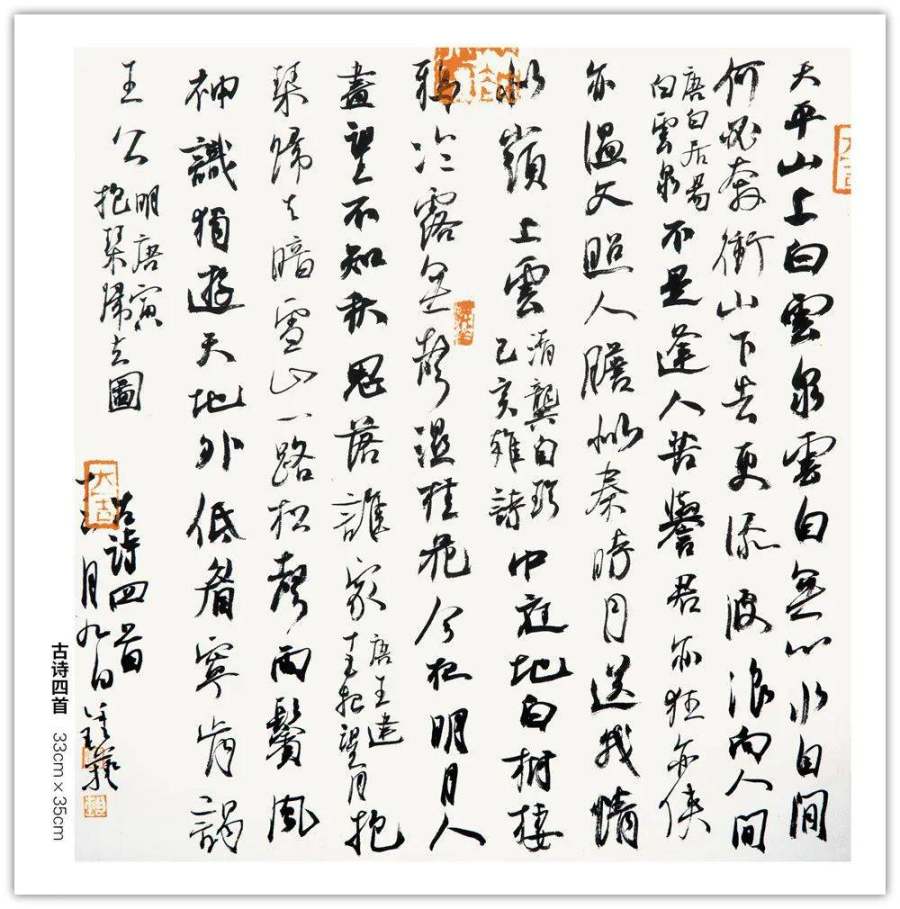 天平山上白雲泉雲自無心水自間
何必奔衝山下去更添波浪向人間
唐白居易
白雲泉
不是逢人苦譽君亦狂亦俠
亦溫文照人膽似秦時月送我情
似嶺上雲
清龔自珍
己亥雜詩
中庭地白樹棲
鴉冷露無聲濕桂花今夜明月人
盡望不知秋思落誰家
唐王建
十五夜望月
抱
琴歸去暗雪山一路松聲兩鬢風
神識獨遊天地外低眉寧肯謁
王公
明唐寅
抱琴歸去圖
古詩四首
月九日
大吉
古诗四首 33cm×35cm